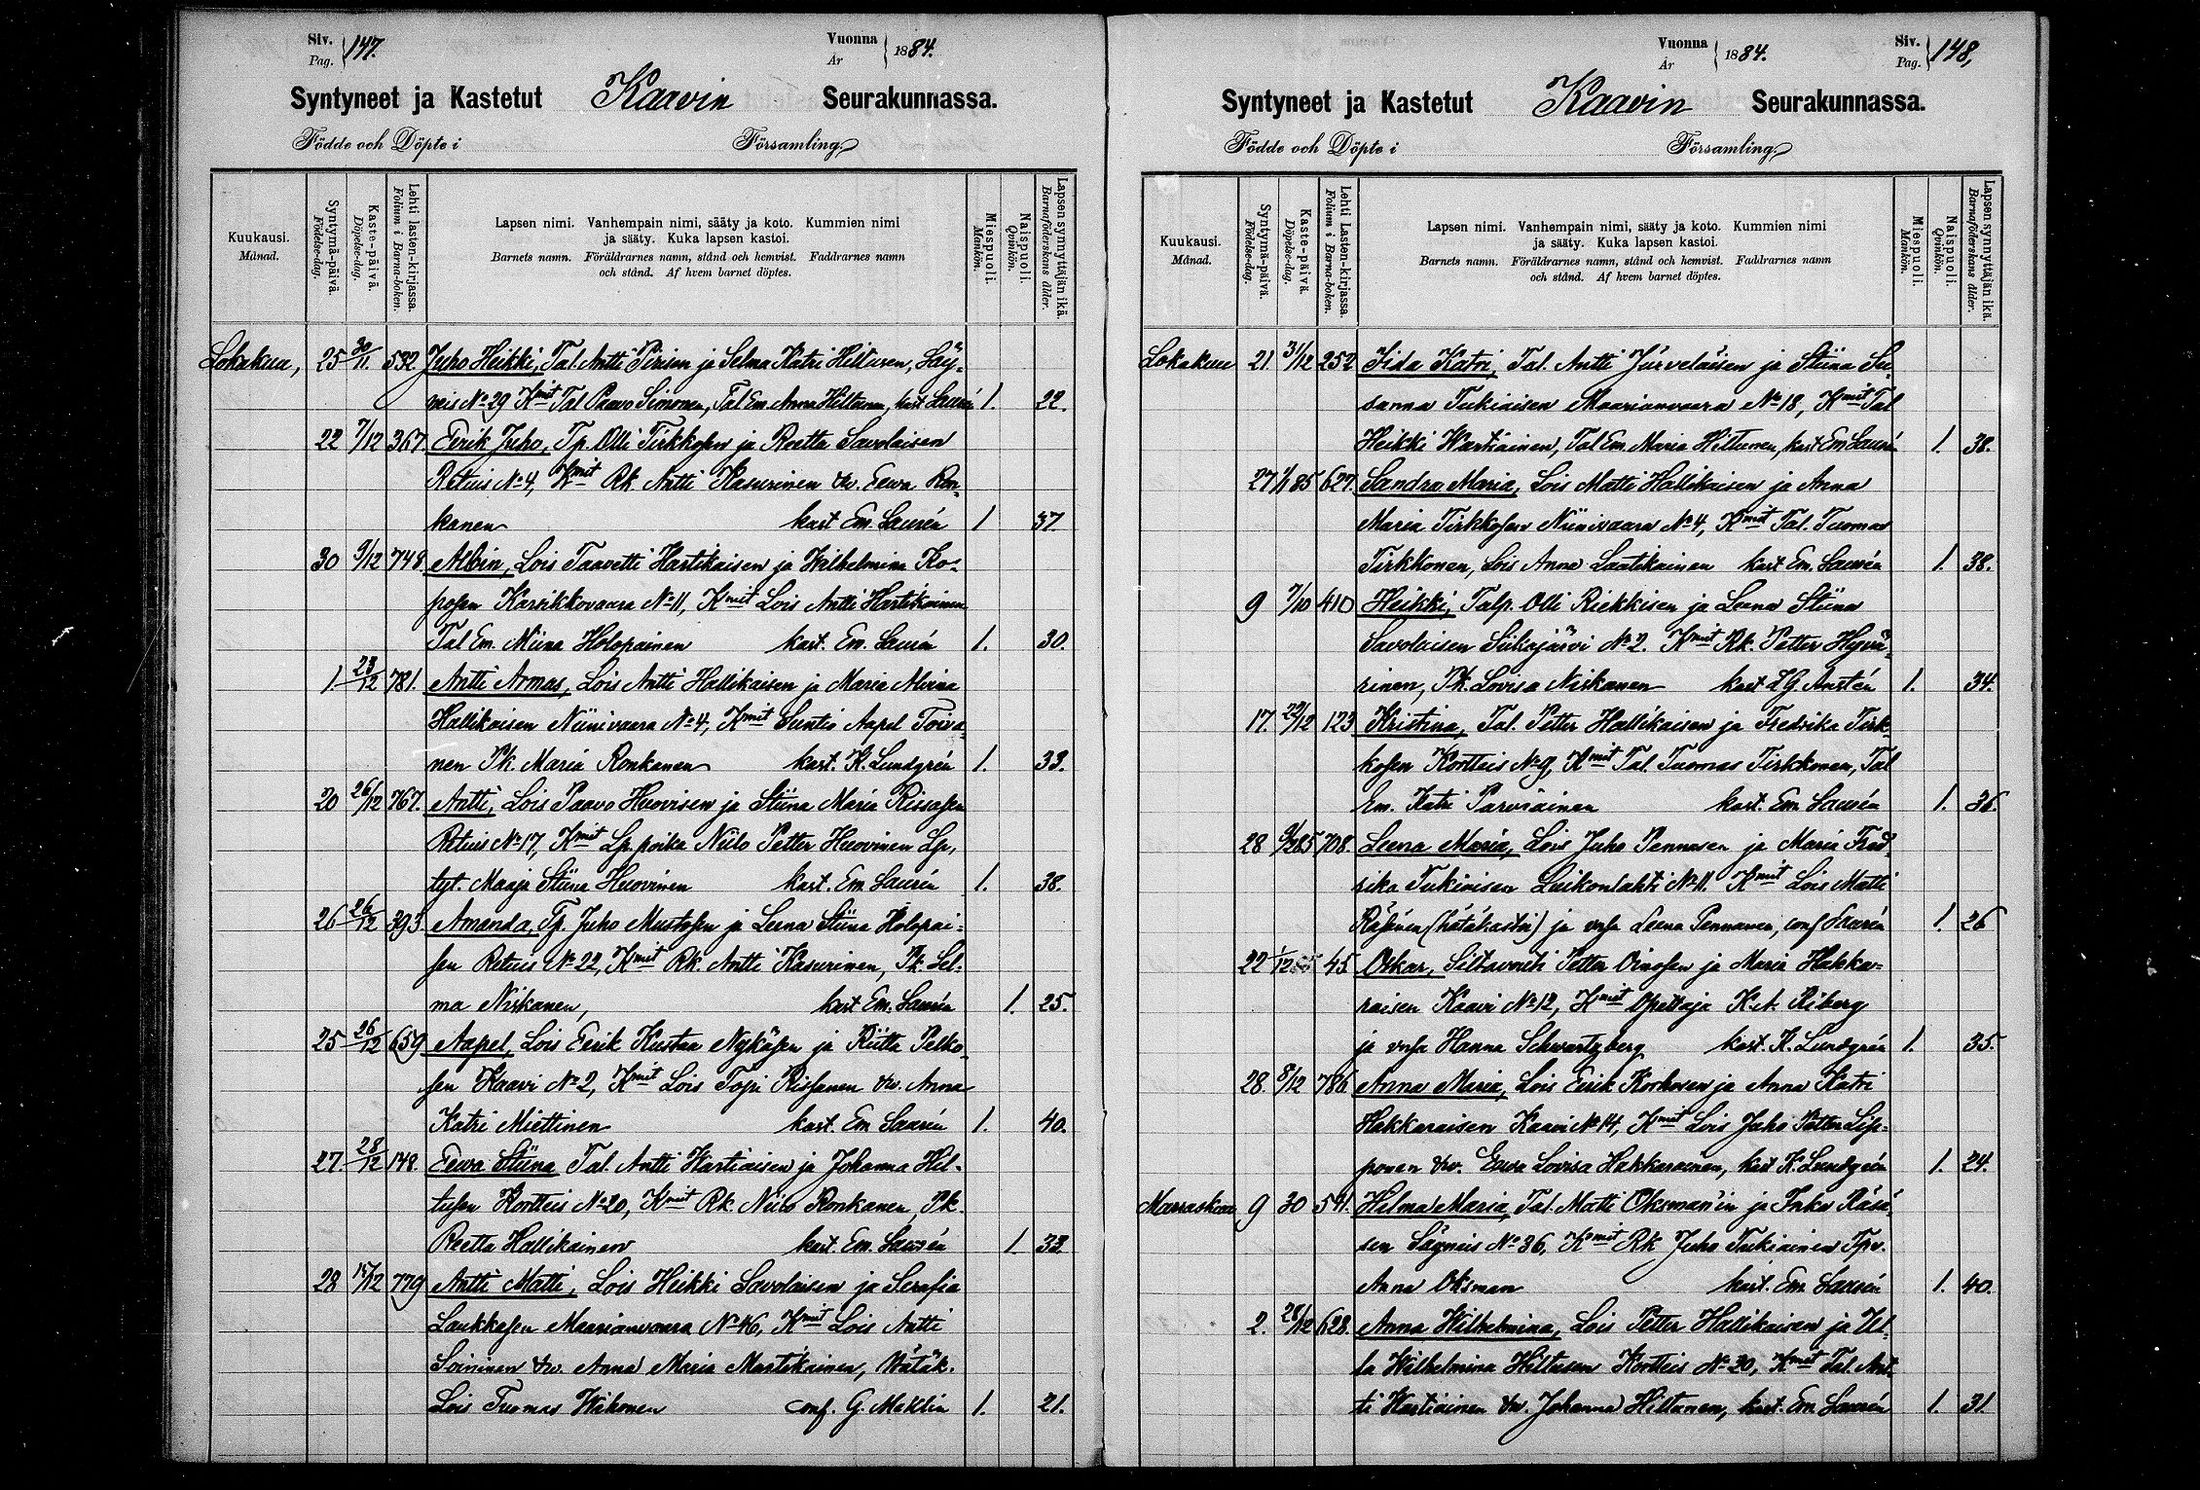 Siv. Pag. 147. Vuonna År 1884.
Syntyneet ja Kastetut Kaavin Seurakunnassa.
Födde och Döpte i Församling.
Kuukausi. Månad.
Syntymä-päivä. Födelse-dag.
Kaste-päivä. Döpelse-dag.
Lehti lasten-kirjassa. Folium i Barna-boken.
Lapsen nimi. Vanhempain nimi, sääty ja koto. Kummien nimi
ja sääty. Kuka lapsen kastoi.
Barnets namn. Föräldrarnes namn, stånd och hemvist. Faddrarnes namn
och stånd. Af hvem barnet döptes.
Miespuoli. Mankön.
Naispuoli. Qvinkön.
Lapsen synnyttäjän ikä. Barnaföderskans ålder.
Lokakuu, 25 30/11. 532. Juho Heikki, Tal. Antti Pirisen ja Selma Katri Hiltusen, Säy-
neis No 29 Kmit Tal Paavo Simonen, Tal Em. Anna Hiltunen, kast Laurén 1. 22.
22 7/12 367. Eerik Juho, Tp. Olli Tirkkosen ja Reetta Savolaisen
Retuis No 4, Kmit Rk. Antti Kasurinen &v. Eewa Ron-
kanen kast Em. Laurén 1 37.
30 9/12 748. Albin, Lois Taavetti Hartikaisen ja Wilhelmina Ko-
posen Karsikkovaara No 11, Kmit Lois Antti Hartikainen
Tal Em. Miina Holopainen kast. Em. Laurén 1. 30.
1. 23/12 781. Antti Armas, Lois Antti Hallikaisen ja Maria Alvina
Hallikaisen Niinivaara No 4, Kmit Suntio Aapel Toiva-
nen Pk. Maria Ronkanen kast. K. Lundgrén 1. 33.
20 26/12 767. Antti, Lois Paavo Huovisen ja Stiina Maria Rissasen
Retuis No 17, Kmit Lp. poika Niilo Petter Huovinen Lp,
tyt. Maaja Stiina Huovinen kast. Em. Laurén 1. 38.
26 26/12 393. Amanda, Tp. Juho Mustosen ja Leena Stiina Holopai-
sen Retuis No 22, Kmit Rk. Antti Kasurinen, Pk. Sel-
ma Niskanen, kast Em. Laurén 1. 25.
25 26/12 659 Aapel, Lois Eerik Kustaa Nykäsen ja Riitta Pelko-
sen Kaavi No 2, Kmit Lois Topi Rissanen &v. Anna
Katri Miettinen kast. Em Laurén 1. 40.
27 28/12 148. Eewa Stiina Tal. Antti Wartiaisen ja Johanna Hil-
tusen Kortteis No 20, Kmit Rk. Niilo Ronkanen, Pk.
Reetta Hallikainen kast. Em. Laurén 1 33.
28 15/12 779 Antti Matti, Lois Heikki Savolaisen ja Serafia
Laukkasen Maarianvaara No 46, Kmit Lois Antti
Soininen &v. Anna Maria Martikainen, Hätäk.
Lois Tuomas Wihonen conf. G. Meklin 1. 21.
Vuonna År 1884. Siv. Pag. 148,
Syntyneet ja Kastetut Kaavin Seurakunnassa.
Födde och Döpte i Församling.
Kuukausi. Månad.
Syntymä-päivä. Födelse-dag.
Kaste-päivä. Döpelse-dag.
Lehti Lasten-kirjassa. Folium i Barna-boken.
Lapsen nimi. Vanhempain nimi, sääty ja koto. Kummien nimi
ja sääty. Kuka lapsen kastoi.
Barnets namn. Föräldrarnes namn, stånd och hemvist. Faddrarnes namn
och stånd. Af hvem barnet döptes.
Miespuoli. Mankön.
Naispuoli. Qvinkön.
Lapsen synnyttäjän ikä. Barnaföderskans ålder.
Lokakuu 21. 31/12 252 Iida Katri, Tal. Antti Järveläisen ja Stiina Su-
sanna Tukiaisen Maarianvaara No 18, Kmit Tal
Heikki Wartiainen, Tal Em. Maria Hiltunen, kast Em Laurén 1. 38.
27 1/1 85 627. Sandra Maria, Lois Matti Hallikaisen ja Anna
Maria Tirkkosen Niinivaara No 4, Kmit Tal. Tuomas
Tirkkonen, Lois Anna Laatikainen kast Em. Laurén 1. 38.
9 7/10 410 Heikki, Talp. Olli Riekkisen ja Leena Stiina
Savolaisen Siikajärvi No 2. Kmit Rk. Petter Hyvä-
rinen, Pk. Lovisa Niskanen kast L G. Anstén 1. 34.
17. 22/12 123 Kristina, Tal. Petter Hallikaisen ja Fredrika Tirk-
kosen Kortteis No 9, Kmit Tal. Tuomas Tirkkonen, Tal
Em. Katri Parviainen kast. Em Laurén 1. 36.
28 85. 708. Leena Maria, Lois Juho Pennasen ja Maria Fred-
rika Tukiaisen Luikonlahti No 11. Kmit Lois Matti
Räsänen (hätäkastri) ja vaso Leena Pennanen, conf Laurén 1. 26
22 45 Oskar, Siltavouti Petter Oinosen ja Maria Hakka-
raisen Kaavi No 12, Kmit Opettaja K. A. Riberg
ja vaso Hanna Schwartzberg kast. K. Lundgrén 1. 35.
28. 8/12 786 Anna Maria, Lois Eerik Korhosen ja Anna Katri
Hakkaraisen Kaavi No 14, Kmit Lois Juho Petter Lip-
ponen &v. Eewa Lovisa Hakkarainen, kast K. Lundgrén 1. 24.
Marraskuu 9 30 541. Helma Maria, Tal. Matti Oksman'in ja Inka Räsä-
sen Säyneis No 36, Kmit Rk Juho Tukiainen Tpv.
Anna Oksman kast. Em. Laurén 1. 40.
2. 28/12 628. Anna Wilhelmina, Lois Petter Hallikaisen ja Ul-
la Wilhelmina Hiltusen Kortteis No 20, Kmit Tal. Ant-
ti Wartiainen &v. Johanna Hiltunen, kast. Em Laurén 1. 31.